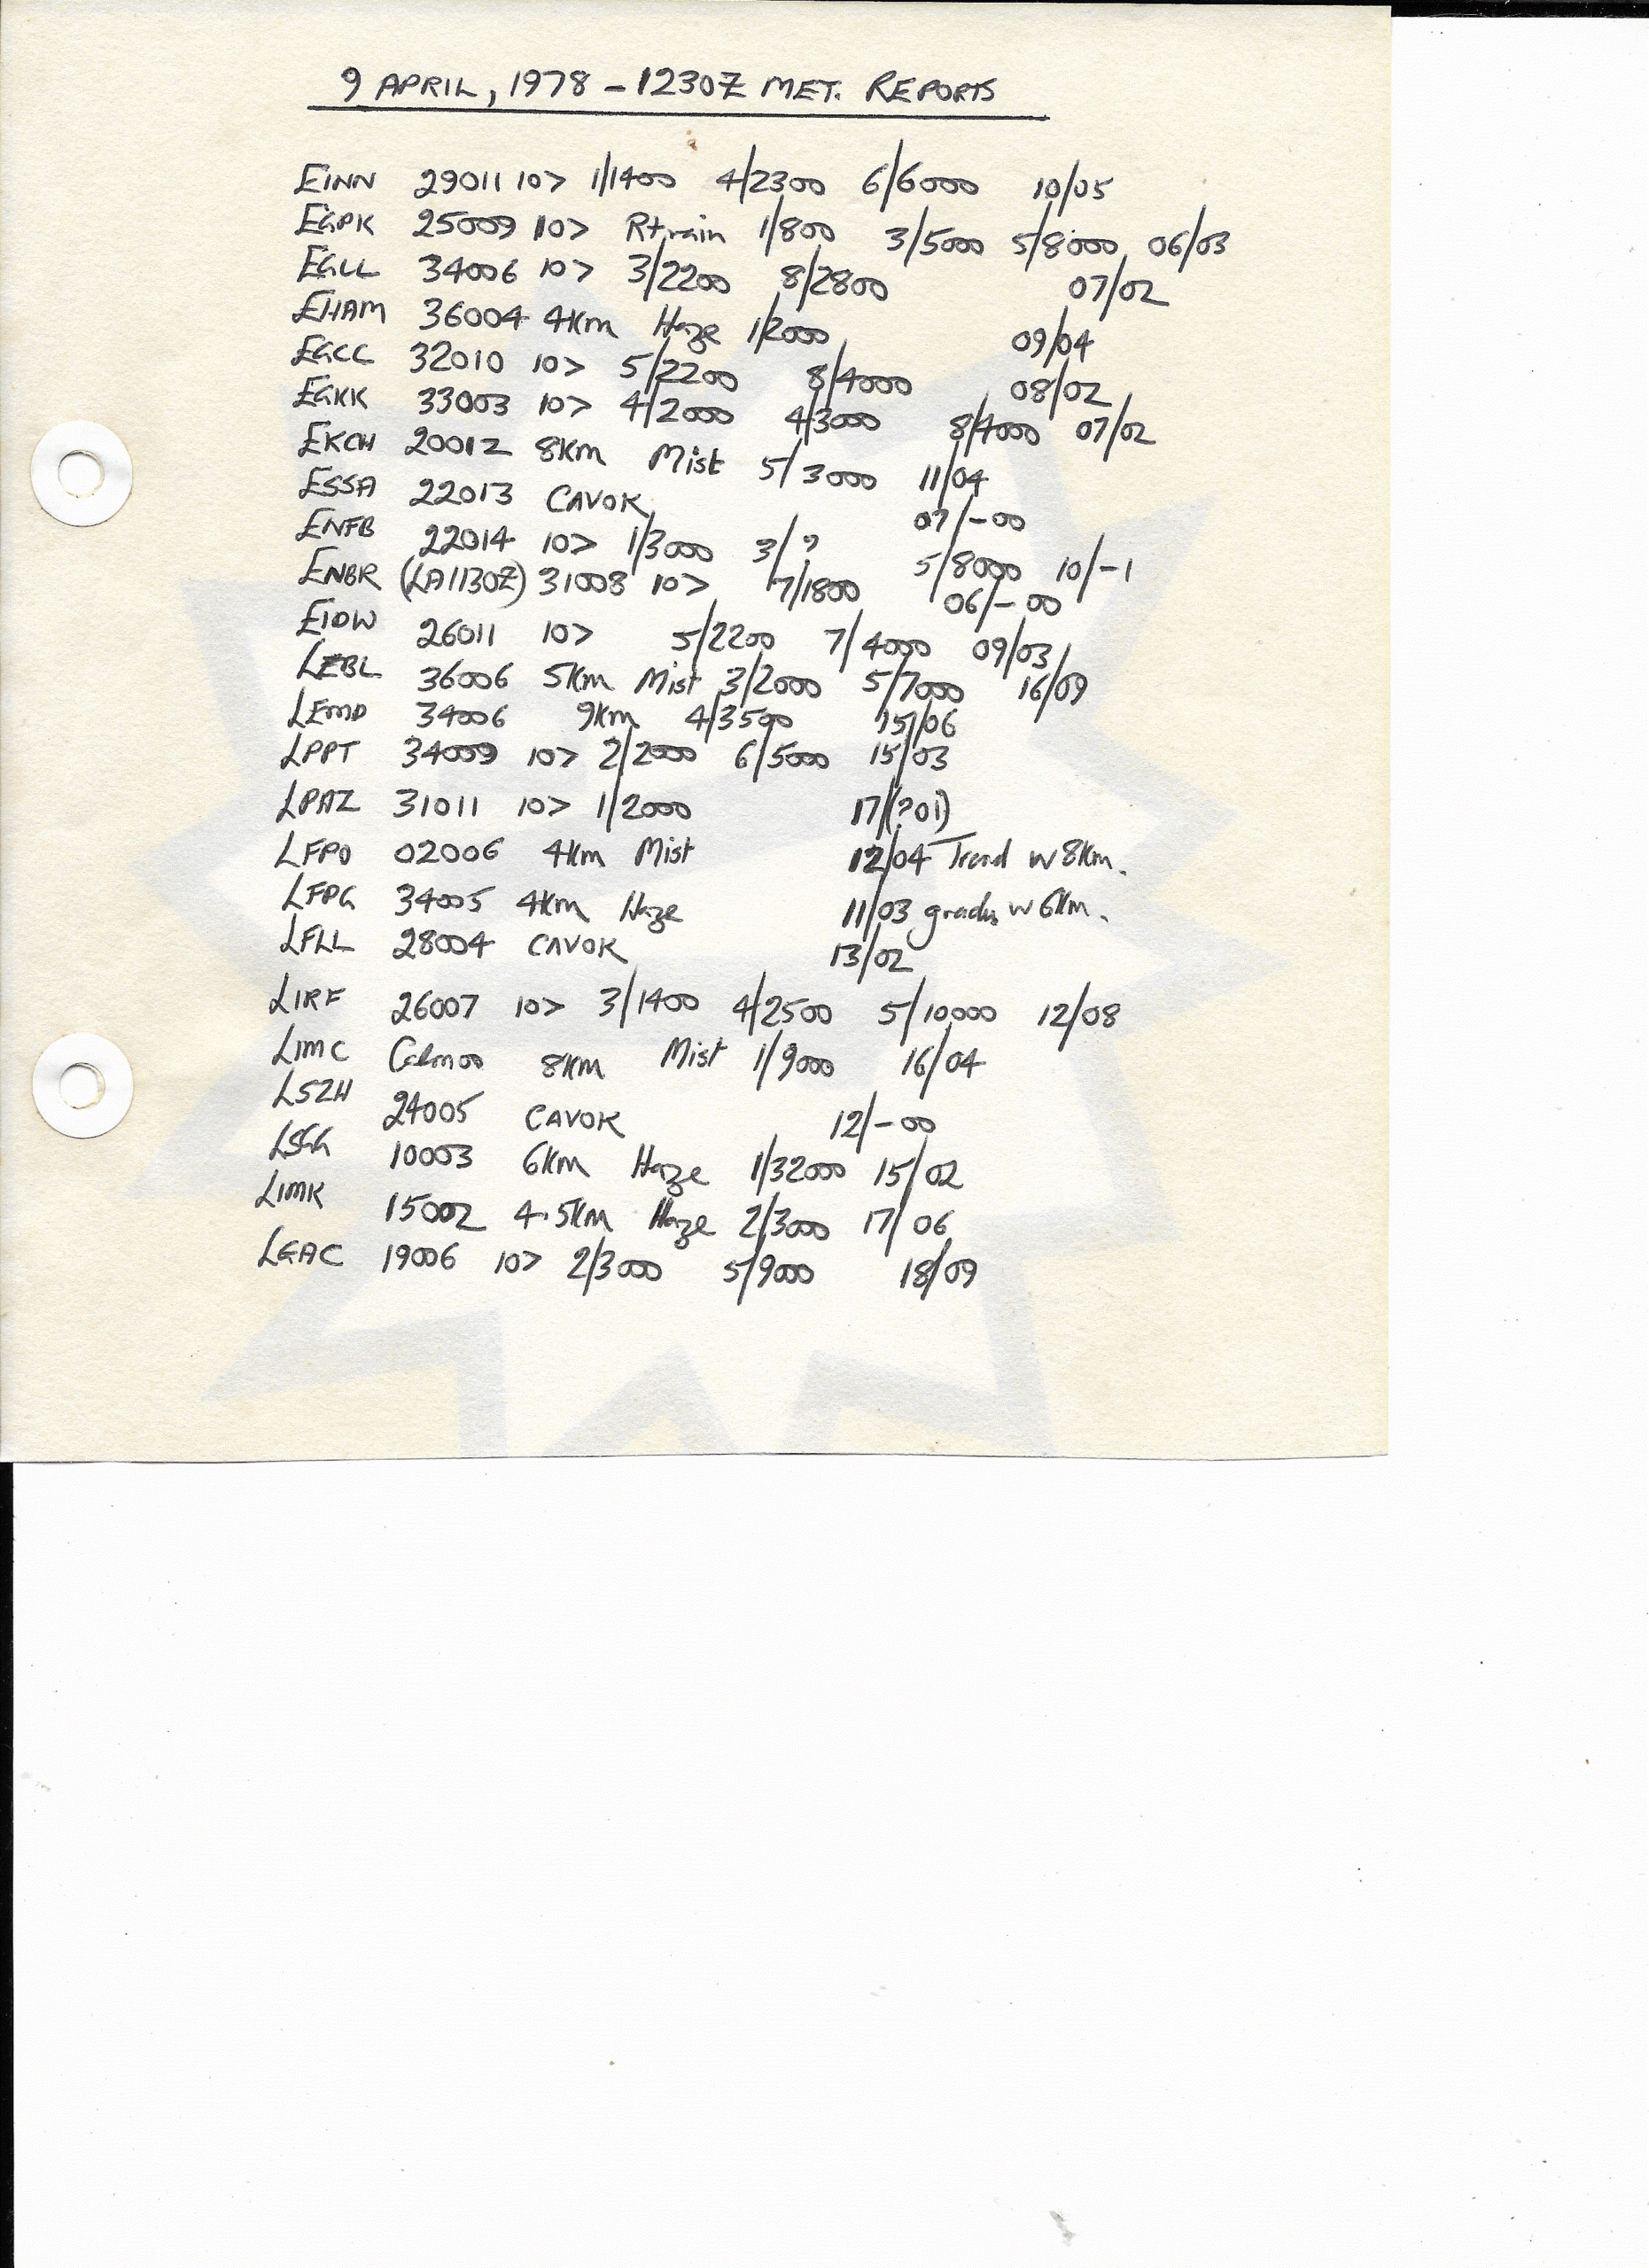 9 APRIL, 1978 - 1230Z MET. REPORTS
EINN 29011 10> 1/1400 4/2300 6/6000 10/05
EGPK 25009 10> Rtrain 1/800 3/5000 5/8000 06/03
EGLL 34006 10> 3/2200 8/2800 07/02
EHAM 36004 4Km Haze 1/2000 09/04
EGCC 32010 10> 5/2200 8/4000 08/02
EGKK 33003 10> 4/2000 4/3000 8/4000 07/02
EKCH 20012 8Km Mist 5/3000 11/04
ESSA 22013 CAVOK 07/-00
ENFB 22014 10> 1/3000 3/? 5/8000 10/-1
ENBR (LA1130Z) 31008 10> 7/1800 06/-00
EIDW 26011 10> 5/2200 7/4000 09/03
LEBL 36006 5Km Mist 3/2000 5/7000 16/09
LEMD 34006 9Km 4/3500 15/06
LPPT 34009 10> 2/2000 6/5000 15/03
LPAZ 31011 10> 1/2000 17/(?01)
LFPO 02006 4Km Mist 12/04 Trend w 8Km.
LFPG 34005 4Km Haze 11/03 gradu w 6Km.
LFLL 28004 CAVOK 13/02
LIRF 26007 10> 3/1400 4/2500 5/10000 12/08
LIMC Calm00 8Km Mist 1/9000 16/04
LSZH 24005 CAVOK 12/-00
LSGG 10003 6Km Haze 1/32000 15/02
LIMK 15002 4.5Km Haze 2/3000 17/06
LGAC 19006 10> 2/3000 5/9000 18/09